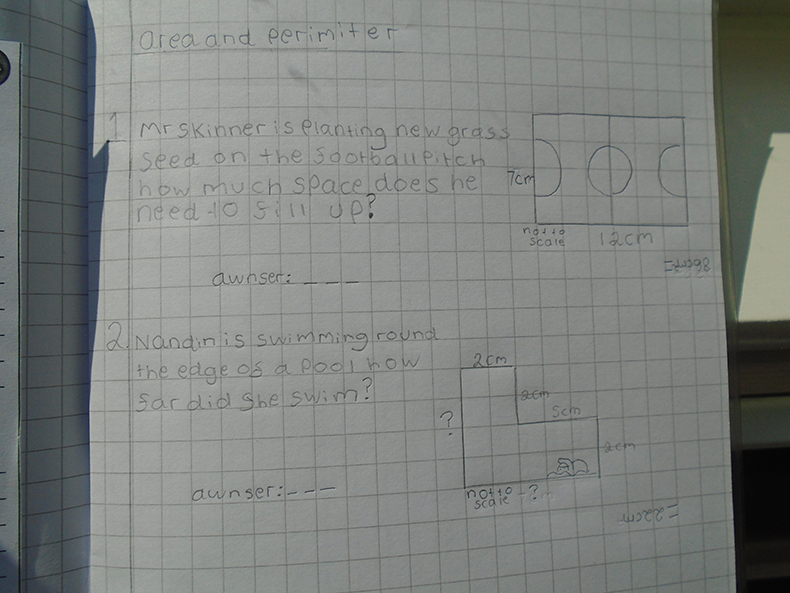 area and perimiter
1 Mr Skinner is planting new grass
seed on the football pitch
how much space does he
need to fill up?
7cm
not to
scale
12cm
awnser: _ _ _
2. Nandin is swimming round
the edge of a pool how
far did she swim?
2cm
2cm
5cm
?
2cm
not to
scale
?
awnser: _ _ _
=22cm